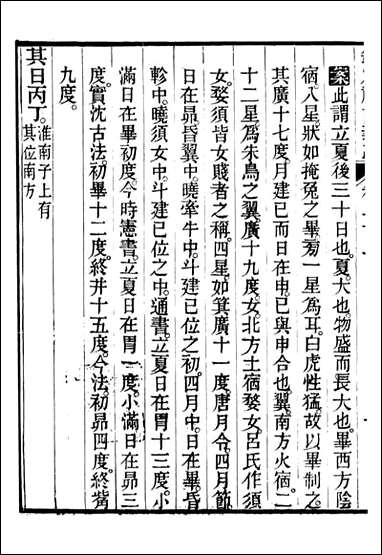 案此謂立夏後三十日也夏大也物盛而長大也畢西方陰
宿八星狀如掩兔之畢旁一星爲耳白虎性猛故以畢制之
其廣十七度月建巳而日在申巳與申合也翼南方火宿二
十二星爲朱鳥之翼廣十九度女北方土宿婺女呂氏作須
女婺須皆女賤者之稱四星如箕廣十一度唐月令四月節
日在昴昏翼中曉牽牛中斗建巳位之初四月中日在畢昏
軫中曉須女中斗建巳位之中通書立夏日在胃十三度小
滿日在畢初度今時憲書立夏日在胃一度小滿日在昴三
度實沈古法初畢十二度終井十五度今法初昴四度終觜
九度
其日丙丁淮南子上有
其位南方